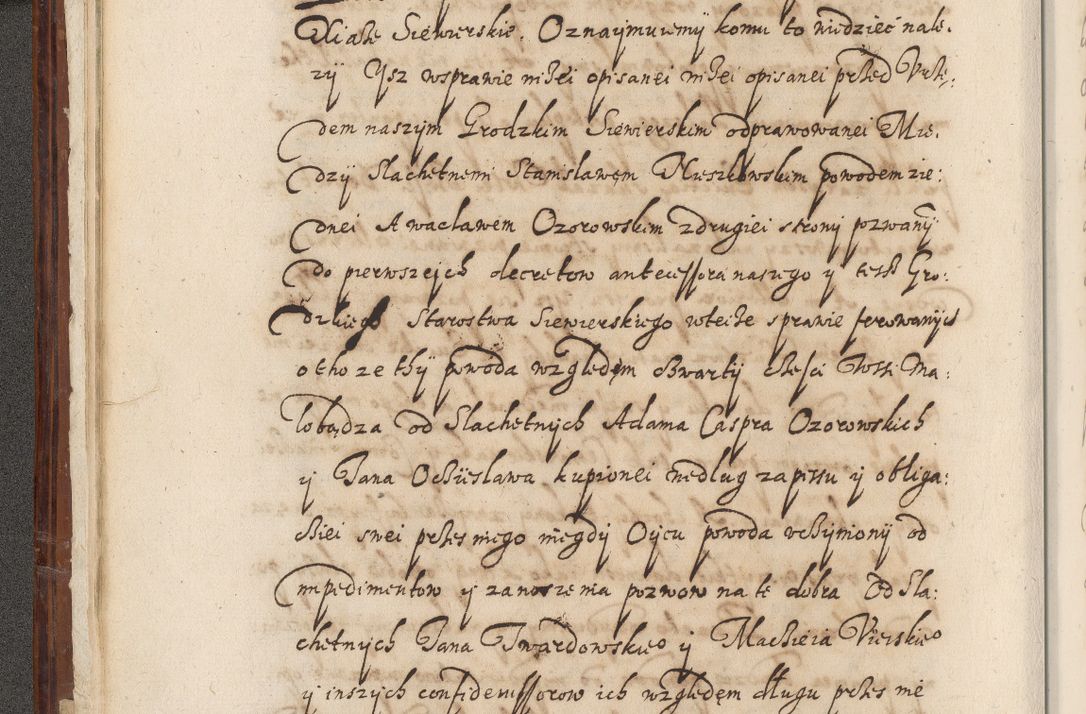 Xiąże Siewierskie. Oznaymuiemy komu to wiedzieć nale.
zy Ysz wsprawie niżei opisanei niżei opisanei przed Vrzę:
dem naszym Grodzkim Siewierskim odprawowanei Mie.
dzy Slachetnemi Stanislawem Kuszkowskim powodem zie:
dnei A waclawem Ozorowskim zdrugiei strony pozwany
do pierwszejch decretow antecessora naszego y tesz Gro:
dzkiego Starostwa Siewierskiego wteize sprawie ferowanych
otho ze thy powoda względem czwarty części Wsi Ma:
lobądza od Slachetnych Adama Caspra Ozorowskich
y Jana Oczieslawa kupionei według zapissu y obliga:
cziei swei przes niego niegdy Oycu powoda vczymiony od
impedimentow y zanoszenia pozwow na te dobra Od Sla:
chetnych Jana Twardowskieo y Maczieia Vierskieo
y inszych confidenssorow ich względem długu przes nie